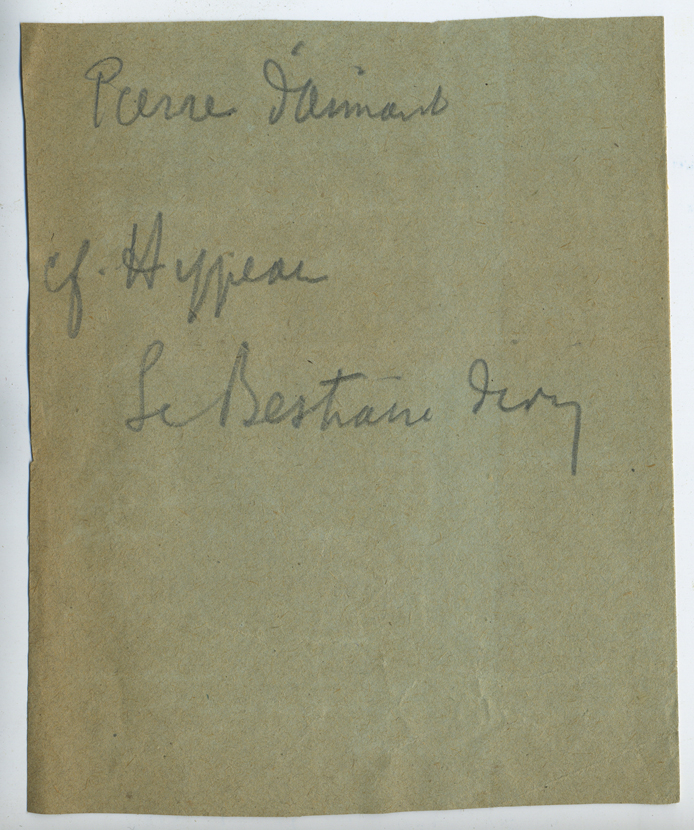 Pierre d'aimant
cf. Hippeau
Le Bestiaire divin